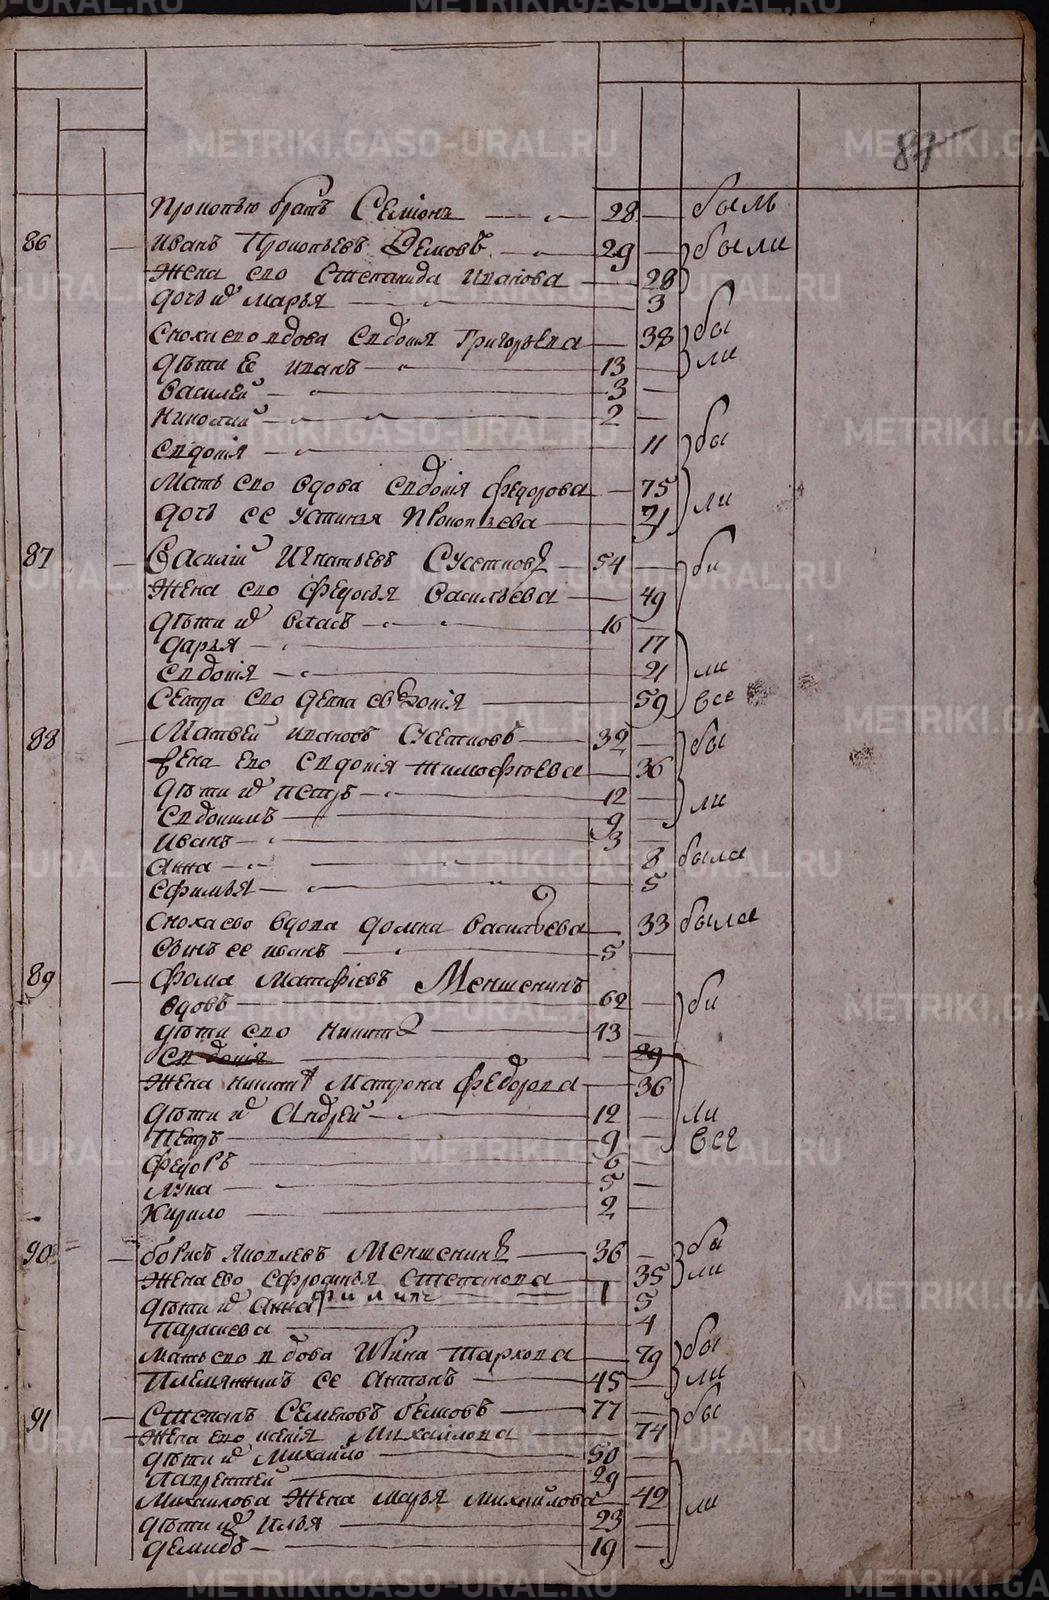 87
Прокопью братъ Семіонъ 28 былъ
86 Иванъ Прокопьевъ Демовъ 29 были
Жена ево Степанида Иванова 28
дочь их Марья 3
Сноха ево вдова Евдокія Григорьева 38 бы
дѣти ее Иванъ 13 ли
Василей 3
Николай 2
Евдокія 11 бы
Мать ево вдова Евдокія Федорова 75
дочь ее Устинья Прокопьева 21 ли
87 Василій Игнатьевъ Сусетковъ 54 бы
Жена ево Федосья Васильева 49
дѣти их Власъ 16
Дарья 17
Евдокія 21 ли
Сестра ево девка Евдокія 59 все
88 Матвей Ивановъ Сусетковъ 32 бы
Жена ево Евдокія Тимофѣева 36
дѣти их Петръ 12 ли
Евдокимъ 9
Иванъ 3
Анна 8 была
Ефимья 5
Сноха ево вдова Домна Васильева 33 была
Сынъ ее Иванъ 5
89 Фома Матфіевъ Меншенинъ
вдовъ 62 бы
дѣти ево Никита 43
Евдокія 29
Жена Никиты Матрона Федорова 36
дѣти их Андрей 12 ли
Петръ 9 все
Федоръ 6
Лука 5
Кирило 2
90 Борисъ Яковлевъ Меншенинъ 36 бы
Жена ево Ефросинья Степанова 35 ли
дѣти их Анна Филипъ 1 5
Парасковья 4
Мать ево вдова Ирина Тархова 79 бы
Племянникъ ее Антонъ 45 ли
91 Степанъ Семеновъ Бѣлковъ 77 бы
Жена ево Ксенія Михайлова 74
дѣти их Михайло 50
Лаврентей 29
Михайлова Жена Марья Михайлова 42 ли
дѣти их Илья 23
Демидъ 19
METRIKI.GASO-URAL.RU